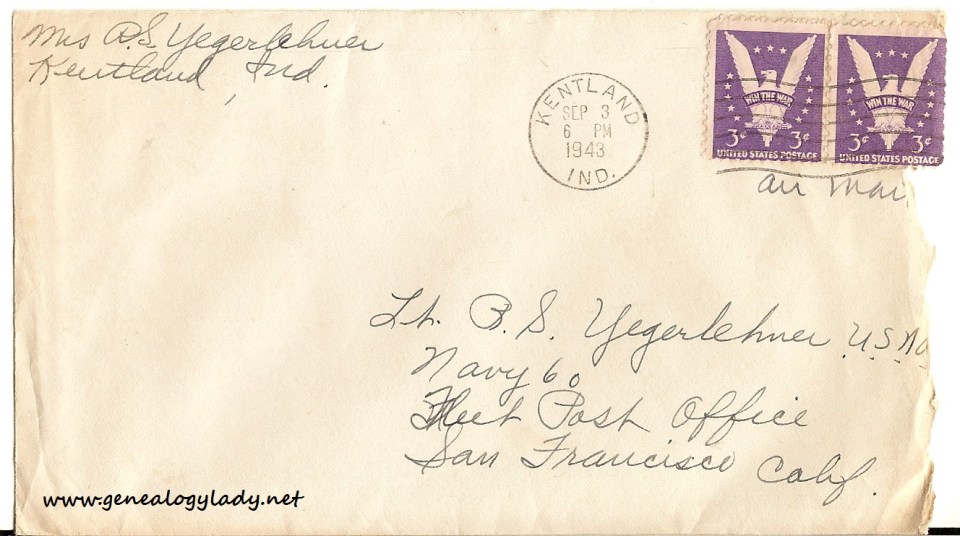 Mrs R.S. Yegerlehner
Kentland, Ind.
KENTLAND
SEP 3
6 PM
1943
IND.
WIN THE WAR
3¢ 3¢
UNITED STATES POSTAGE
WIN THE WAR
3¢ 3¢
UNITED STATES POSTAGE
air mai
Lt. R. S. Yegerlehner U.S.N
Navy 60
Fleet Post Office
San Francisco Calif.
www.genealogylady.net